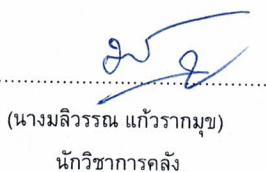 (นางมลิวรรณ แก้วรากมุข)
นักวิชาการคลัง